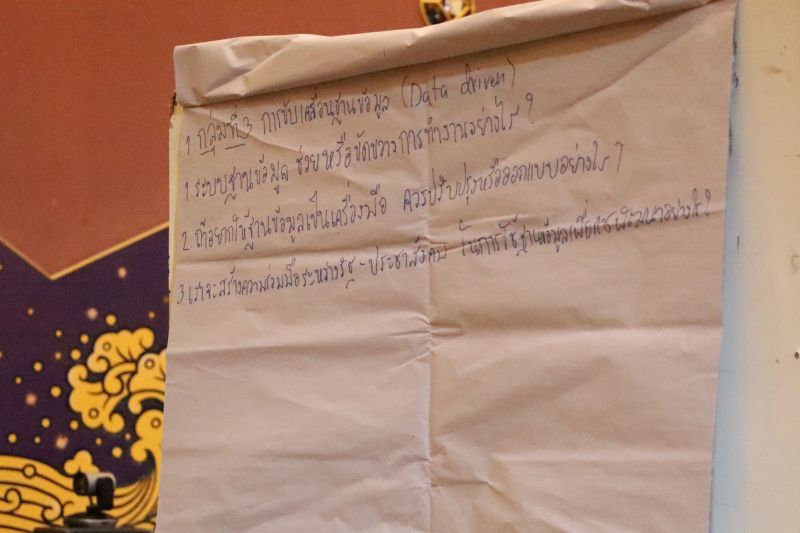 1 กลุ่มที่ 3 การขับเคลื่อนฐานข้อมูล (Data driven)
1. ระบบฐานข้อมูล ช่วยหรือขัดขวางการทำงานอย่างไร ?
2. ถ้าอยากให้ฐานข้อมูลเป็นเครื่องมือ ควรปรับปรุงหรือออกแบบอย่างไร ?
3. เราจะสร้างความร่วมมือระหว่างรัฐ - ประชาสังคม ในการใช้ฐานข้อมูลเพื่อ อย่างไร ?